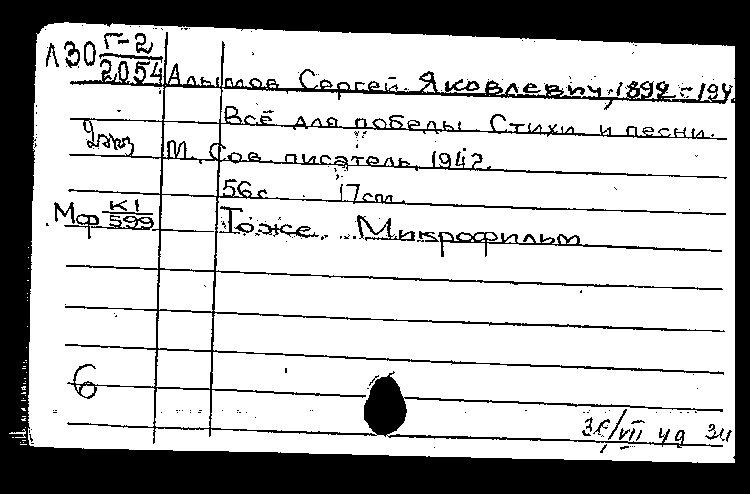 Л30 Г-2
2054 Алымов, Сергей Яковлевич, 1892-194
Всё для победы. Стихи и песни.
2экз М., Сов. писатель, 1942.
56с. 17см.
Мф К1/599 Тоже. Микрофильм
6
VII 49